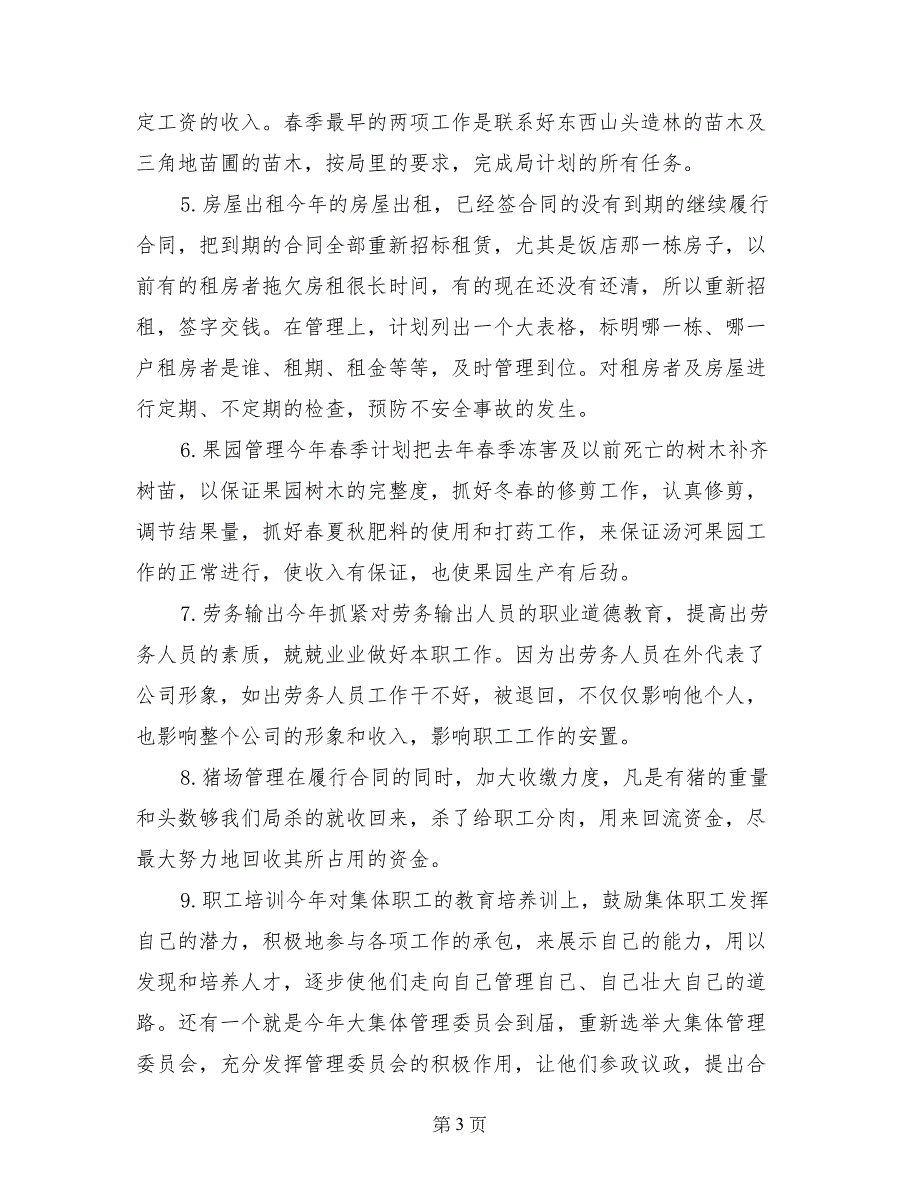 定工资的收入。春季最早的两项工作是联系好东西山头造林的苗木及
三角地苗圃的苗木，按局里的要求，完成局计划的所有任务。
5. 房屋出租今年的房屋出租，已经签合同的没有到期的继续履行
合同，把到期的合同全部重新招标租赁，尤其是饭店那一栋房子，以
前有的租房者拖欠房租很长时间，有的现在还没有还清，所以重新招
租，签字交钱。在管理上，计划列出一个大表格，标明哪一栋、哪一
户租房者是谁、租期、租金等等，及时管理到位。对租房者及房屋进
行定期、不定期的检查，预防不安全事故的发生。
6. 果园管理今年春季计划把去年春季冻害及以前死亡的树木补齐
树苗，以保证果园树木的完整度，抓好冬春的修剪工作，认真修剪，
调节结果量，抓好春夏秋肥料的使用和打药工作，来保证汤河果园工
作的正常进行，使收入有保证，也使果园生产有后劲。
7. 劳务输出今年抓紧对劳务输出人员的职业道德教育，提高出劳
务人员的素质，兢兢业业做好本职工作。因为出劳务人员在外代表了
公司形象，如出劳务人员工作干不好，被退回，不仅仅影响他个人，
也影响整个公司的形象和收入，影响职工工作的安置。
8. 猪场管理在履行合同的同时，加大收缴力度，凡是有猪的重量
和头数够我们局杀的就收回来，杀了给职工分肉，用来回流资金，尽
最大努力地回收其所占用的资金。
9. 职工培训今年对集体职工的教育培养训上，鼓励集体职工发挥
自己的潜力，积极地参与各项工作的承包，来展示自己的能力，用以
发现和培养人才，逐步使他们走向自己管理自己、自己壮大自己的道
路。还有一个就是今年大集体管理委员会到届，重新选举大集体管理
委员会，充分发挥管理委员会的积极作用，让他们参政议政，提出合
第 3 页